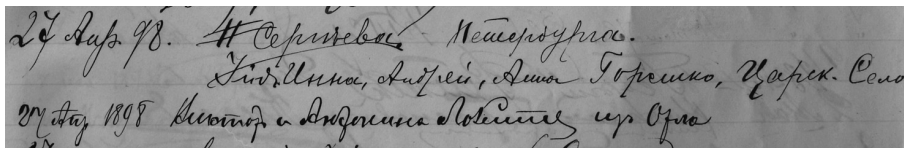 27 Апр. 98. Н Сергѣева. Петербурга.
Инна, Андрей, Анна Горенко, Царск. Село
27 Апр 1898 Виктор и Антонина из Орла